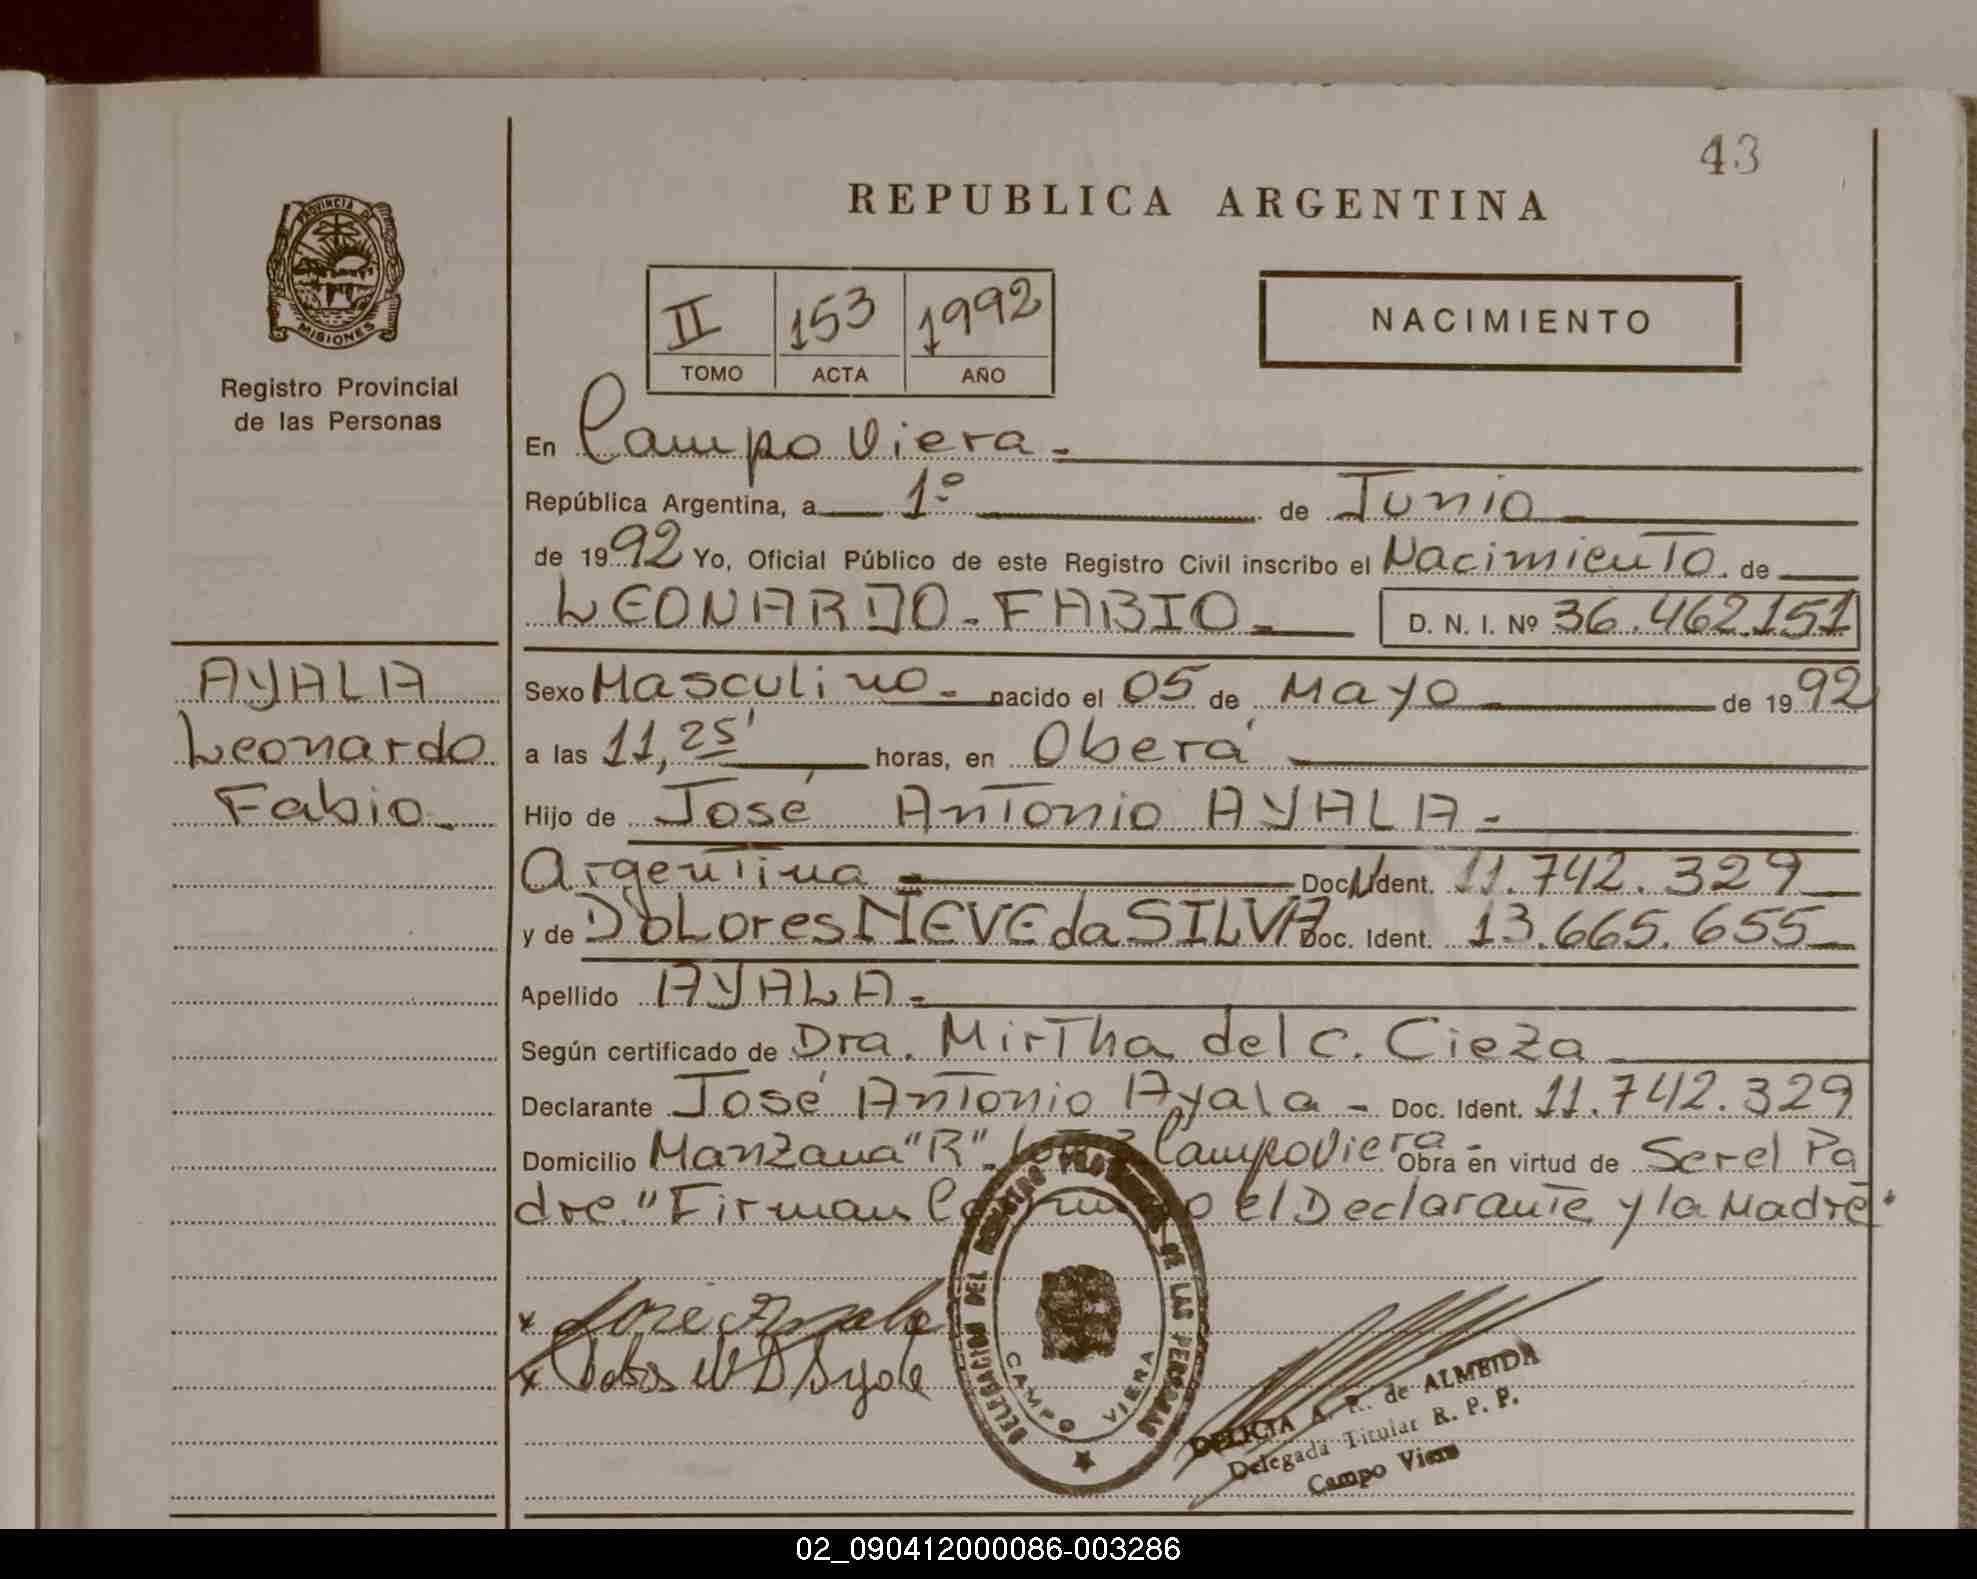 43
REPUBLICA ARGENTINA
PROVINCIA DE
MISIONES
Registro Provincial
de las Personas
II 153 1992
TOMO ACTA AÑO
NACIMIENTO
En Campo Viera.-
República Argentina, a 1º de Junio
de 1992 Yo, Oficial Público de este Registro Civil inscribo el Nacimiento. de
LEONARDO-FABIO.- D. N. I. Nº 36.462.151
AYALA
Leonardo
Fabio.-
Sexo Masculino.- nacido el 05 de Mayo de 1992
a las 11,25' horas, en Oberá
Hijo de José Antonio AYALA.-
Argentina.- Doc. Ident. 11.742.329
y de DoLores NEVE da SILVA Doc. Ident. 13.665.655
Apellido AYALA.-
Según certificado de Dra. Mirtha del C. Cieza
Declarante José Antonio Ayala - Doc. Ident. 11.742.329
Domicilio Manzana "R". Campo Viera.- Obra en virtud de Ser el Pa
dre." Firman el Declarante y la Madre.
x José Ayala
x
DELEGACION DEL REGISTRO DE LAS PERSONAS
CAMPO VIERA
DELICIA A. R. de ALMEIDA
Delegada Titular R. P. P.
Campo Viera
02_090412000086-003286